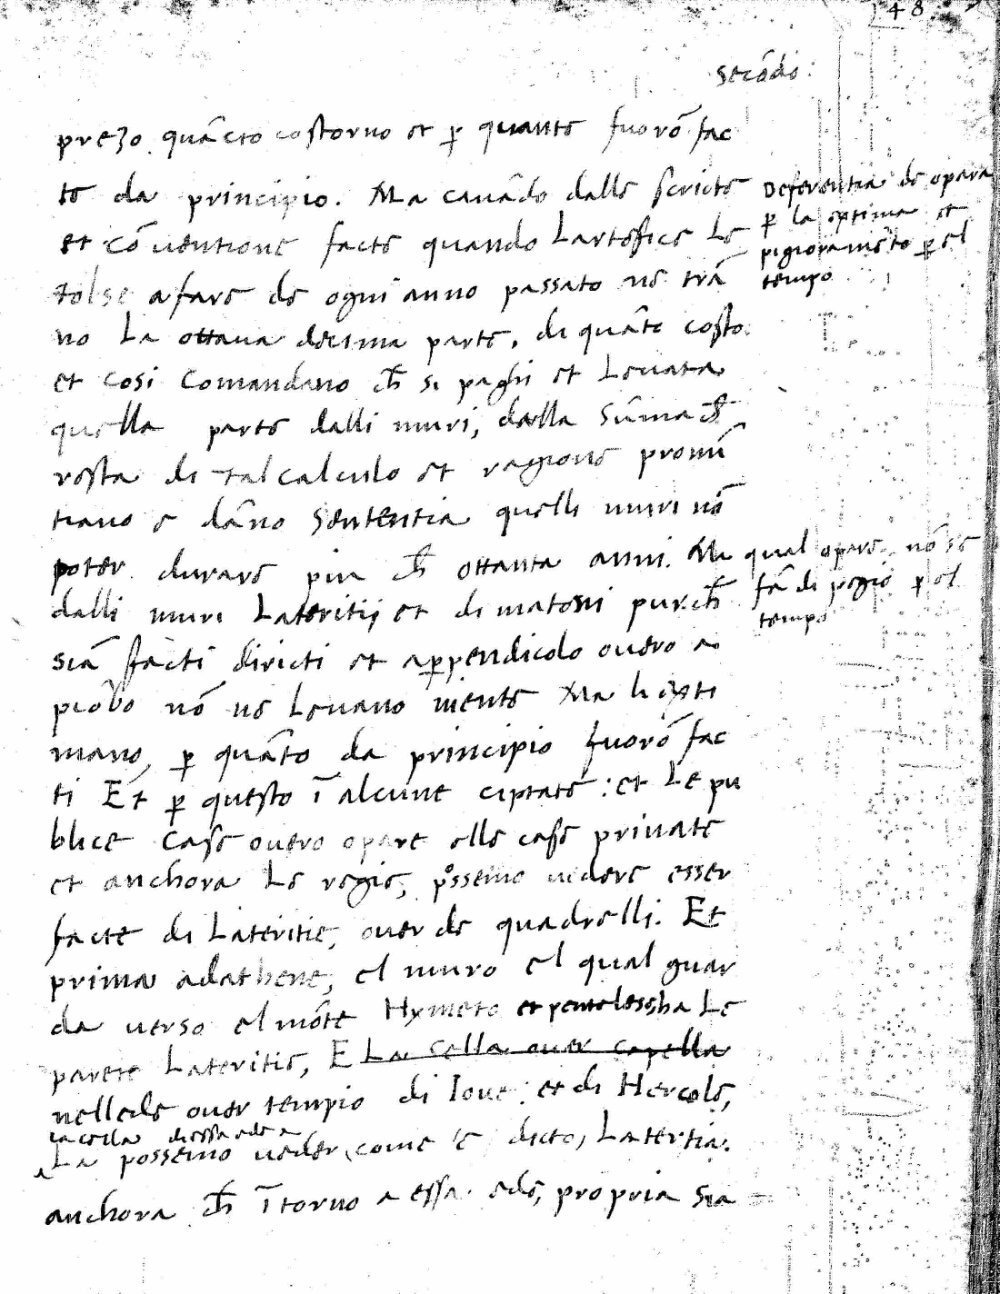 48
secōdo
prezo quācto costorno et p quanto fuorō fac
te da principio. Ma cauādo dalle scricte
et cōuentione facte quando Lartefice Le
tolse afare de ogni anno passato ne trā
no La ottaua decima parte, di quāto costo
et cosi Comandano ch̄ si paghi et Leuata
quella parte dalli muri, dalla Sūma ch̄
resta di tal calculo et ragione pronū
tiano e dāno Sententia quelli muri nō
poter durare piu ch̄ ottanta anni. Ma
dalli muri Lateritij et di matoni pur ch̄
siā facti diricti et appendicolo ouero a
piōbo nō ne Leuano niente Ma li exti
mano, p quāto da principio fuorō fac
ti Et p questo ī alcune ciptate: et Le pu
blice Case ouero opare elle case priuate
et anchora Le regie, possemo uedere esser
facte di Lateritie, ouer de quadrelli. Et
prima adathene, el muro el qual guar
da uerso el mōte Hymeto et pentelese, ha Le
parete Lateritie, E La Cella ouer capella
nellede ouer tempio di Ioue: et di Hercole,
la cella di essa ede a
La possemo ueder, come e dicto, Latertia.
anchora ch̄ ītorno a essa ede, propria sia
Deferentia de opara
p la optima et
pigioramēto p el
tempo
qual opare nō se
fā di pegio p el
tempo